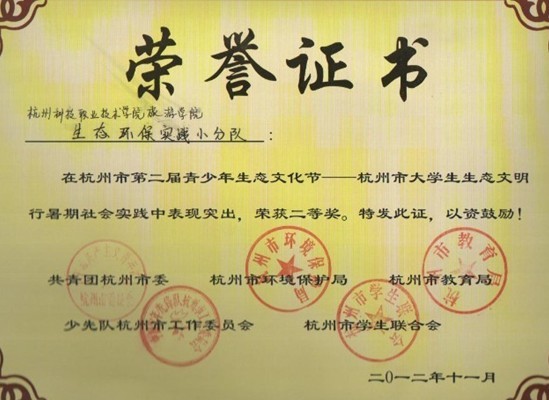 荣誉证书
杭州科技职业技术学院旅游学院
生态环保实践小分队：
在杭州市第二届青少年生态文化节——杭州市大学生生态文明
行暑期社会实践中表现突出，荣获二等奖。特发此证，以资鼓励！
共青团杭州市委 杭州市环境保护局 杭州市教育局
少先队杭州市工作委员会 杭州市学生联合会
杭州市环境保护局
杭州市教育局
杭州市学生联合会
二〇一二年十一月